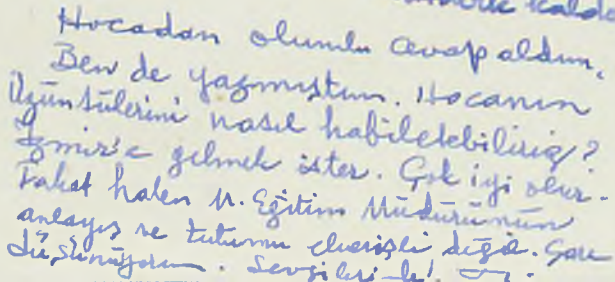 kaldı
Hocadan olumlu cevap aldım.
Ben de yazmıştım. Hocanın
Üzüntülerini nasıl hafifletebiliriz?
İzmir'e gelmek ister. Çok iyi olur.
Fakat halen M. Eğitim Müdürünün
anlayış ve tutumu elverişli değil. Çare
düşünüyorum. Sevgilerimle!